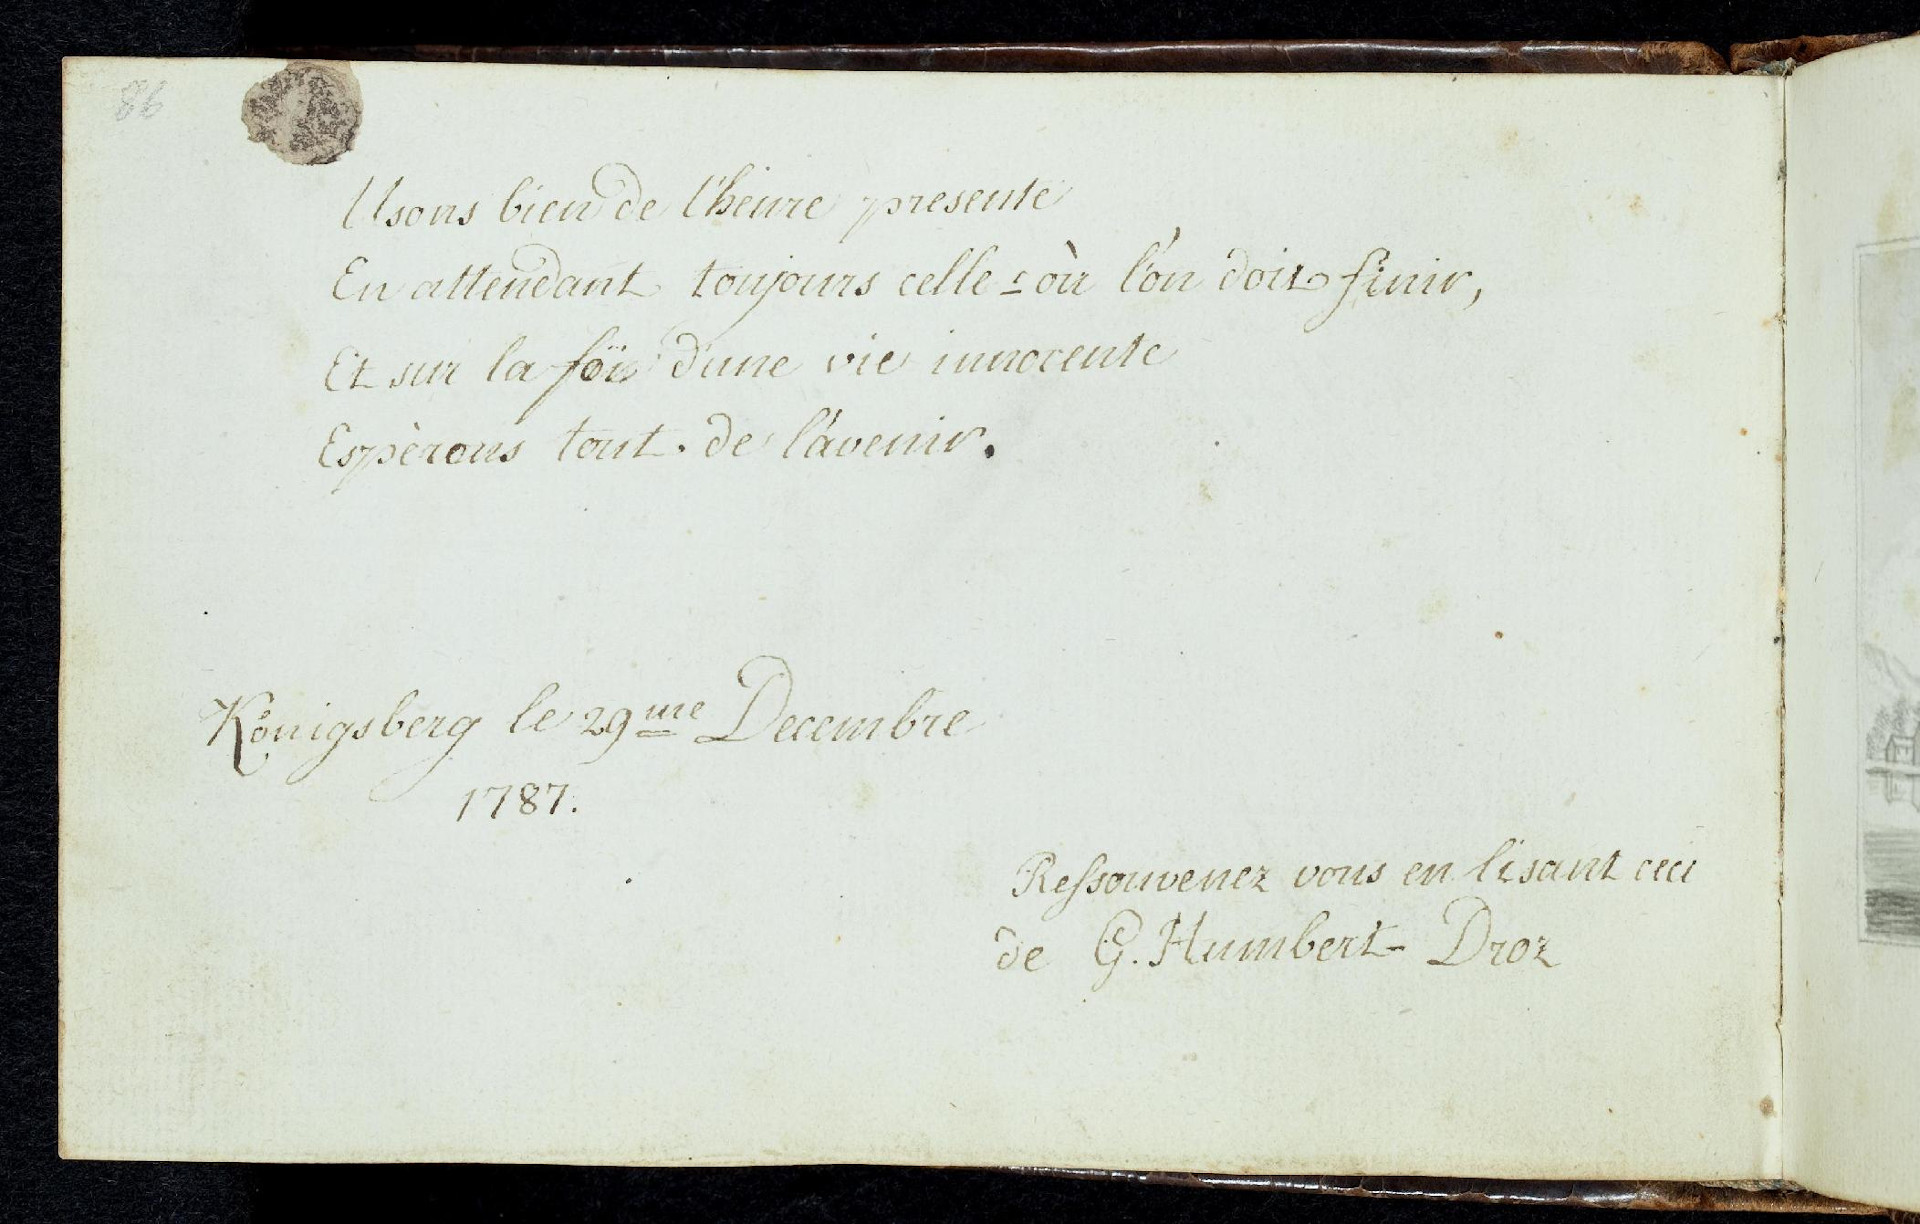 86
Usons bien de l'heure presente
En attendant toujours celle-où l'on doit finir,
Et sur la foï d'une vie innocente
Espèrons tout de l'avenir.
Königsberg le 29me Decembre
1787.
Ressouvenez vous en lisant ceci
de G. Humbert-Droz